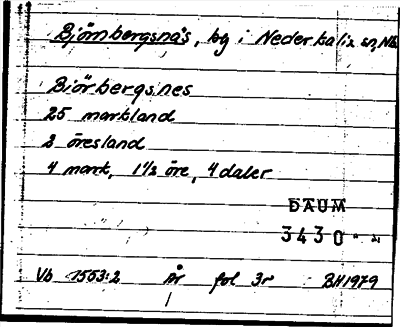 Björnbergsnäs, by i Nederkalix sn, Nb
Björbergsnes
25 markland
2 öresland
4 mark, 1 1/2 öre, 4 daler
DAUM
3430
Vb 1553:2 År fol 3r BH1979